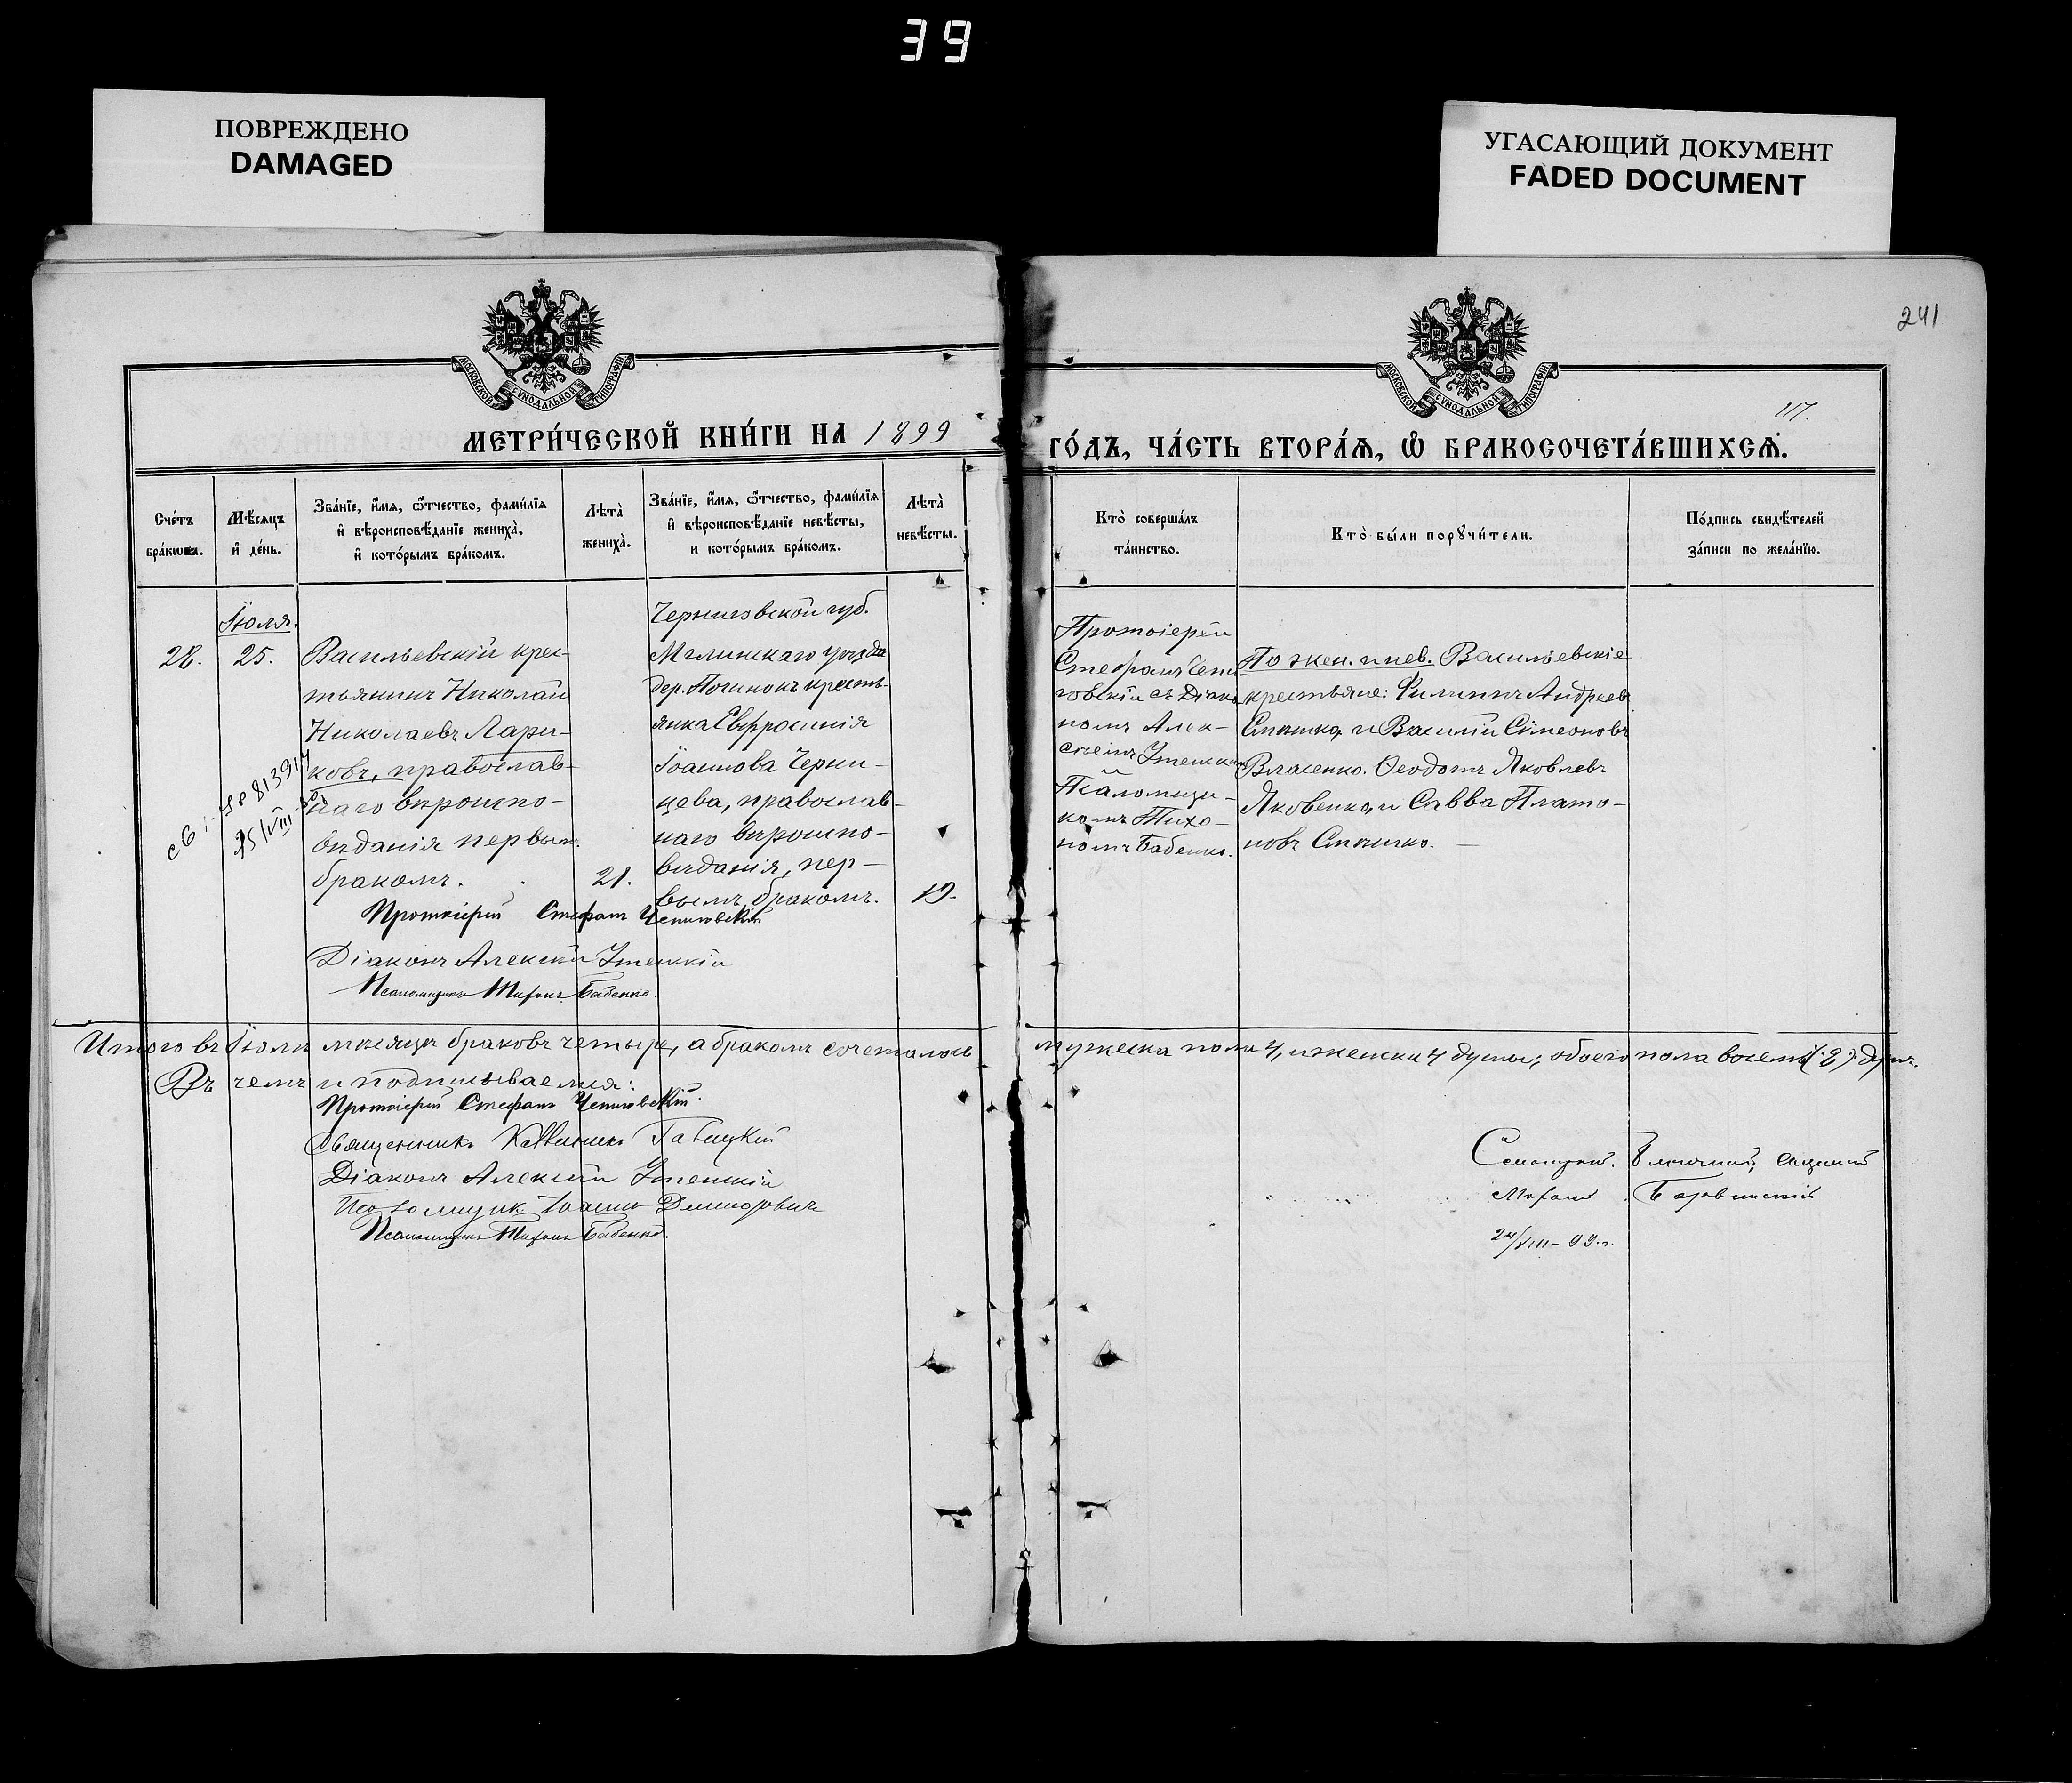 39
ПОВРЕЖДЕНО
DAMAGED
УГАСАЮЩИЙ ДОКУМЕНТ
FADED DOCUMENT
241
117.
МОСКОВСКОЙ СѴНОДАЛЬНОЙ ТИПОГРАФІИ
МОСКОВСКОЙ СѴНОДАЛЬНОЙ ТИПОГРАФІИ
МЕТРИ́ЧЕСКОЙ КНИ́ГИ НА 1899
ГО́ДЪ, ЧА́СТЬ ВТОРА́Ѧ, Ѽ БРАКОСОЧЕТА́ВШИХСѦ.
Сче́тъ
бра́кωвъ.
Мѣ́сѧцъ
и҆ де́нь.
Зва́нїе, и҆́мѧ, ѻ҆́тчество, фами́лїѧ
и҆ вѣроисповѣ́данїе жениха̀,
и҆ кото́рымъ бра́комъ.
Лѣта̀
жениха̀.
Зва́нїе, и҆́мѧ, ѻ҆́тчество, фами́лїѧ
и҆ вѣроисповѣ́данїе невѣ́сты,
и кото́рымъ бра́комъ.
Лѣта̀
невѣ́сты.
Кто̀ соверша́лъ
та́инство.
Кто̀ бы́ли порꙋчи́тели.
По́дпись свидѣ́телей
за́писи по жела́нїю.
28.
Іюля.
25.
Васильевскій крес-
тьянинъ Николай
Николаевъ Лари-
ковъ, православ-
наго вѣроиспо-
вѣданія первымъ
бракомъ.
21.
Черниговской губ.
Мглинскаго уѣзда
дер. Починокъ кресть-
янка Евфросинія
Іоаннова Черни-
цева, православ-
наго вѣроиспо-
вѣданія, пер-
вымъ бракомъ.
19.
Протоіерей
Стефанъ Чепи-
говскій съ Діако-
номъ Алек-
сѣемъ
Псаломщи-
комъ Тихо-
номъ Бабенко.
По жен. и нев. Васильевскіе
крестьяне: Филиппъ Андреевъ
и Василій Симеоновъ
Власенко. Ѳеодотъ Яковлевъ
Яковенко, и Савва Плато-
новъ
Протоіерей Стефанъ Чепиговскій
Діаконъ Алексѣй
Псаломщикъ Тихонъ Бабенко.
Итого въ Іюлѣ мѣсяцѣ браковъ четыре, а бракомъ сочеталось
мужеска пола 4, и женска 4 души; обоего пола восемь (8) душъ.
Въ чемъ и подписываемся:
Протоіерей Стефанъ Чепиговскій.
Священникъ
Діаконъ Алексѣй
Псаломщик Іоаннъ
Псаломщикъ Тихонъ Бабенко.